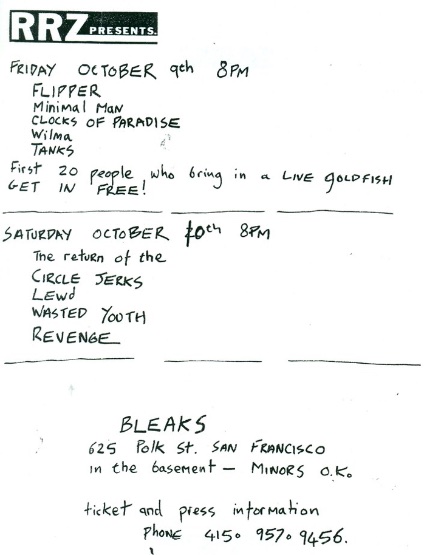 RRZ PRESENTS.
FRIDAY OCTOBER 9th 8PM
FLIPPER
Minimal Man
CLOCKS OF PARADISE
Wilma
TANKS
First 20 people who bring in a LIVE GOLDFISH
GET IN FREE!
SATURDAY OCTOBER 10th 8PM
The return of the
CIRCLE JERKS
LEWd
WASTED YOUTH
REVENGE
BLEAKS
625 Polk St. SAN FRANCISCO
in the basement — MINORS O.K.
ticket and press information
PHONE 415. 957. 9456.